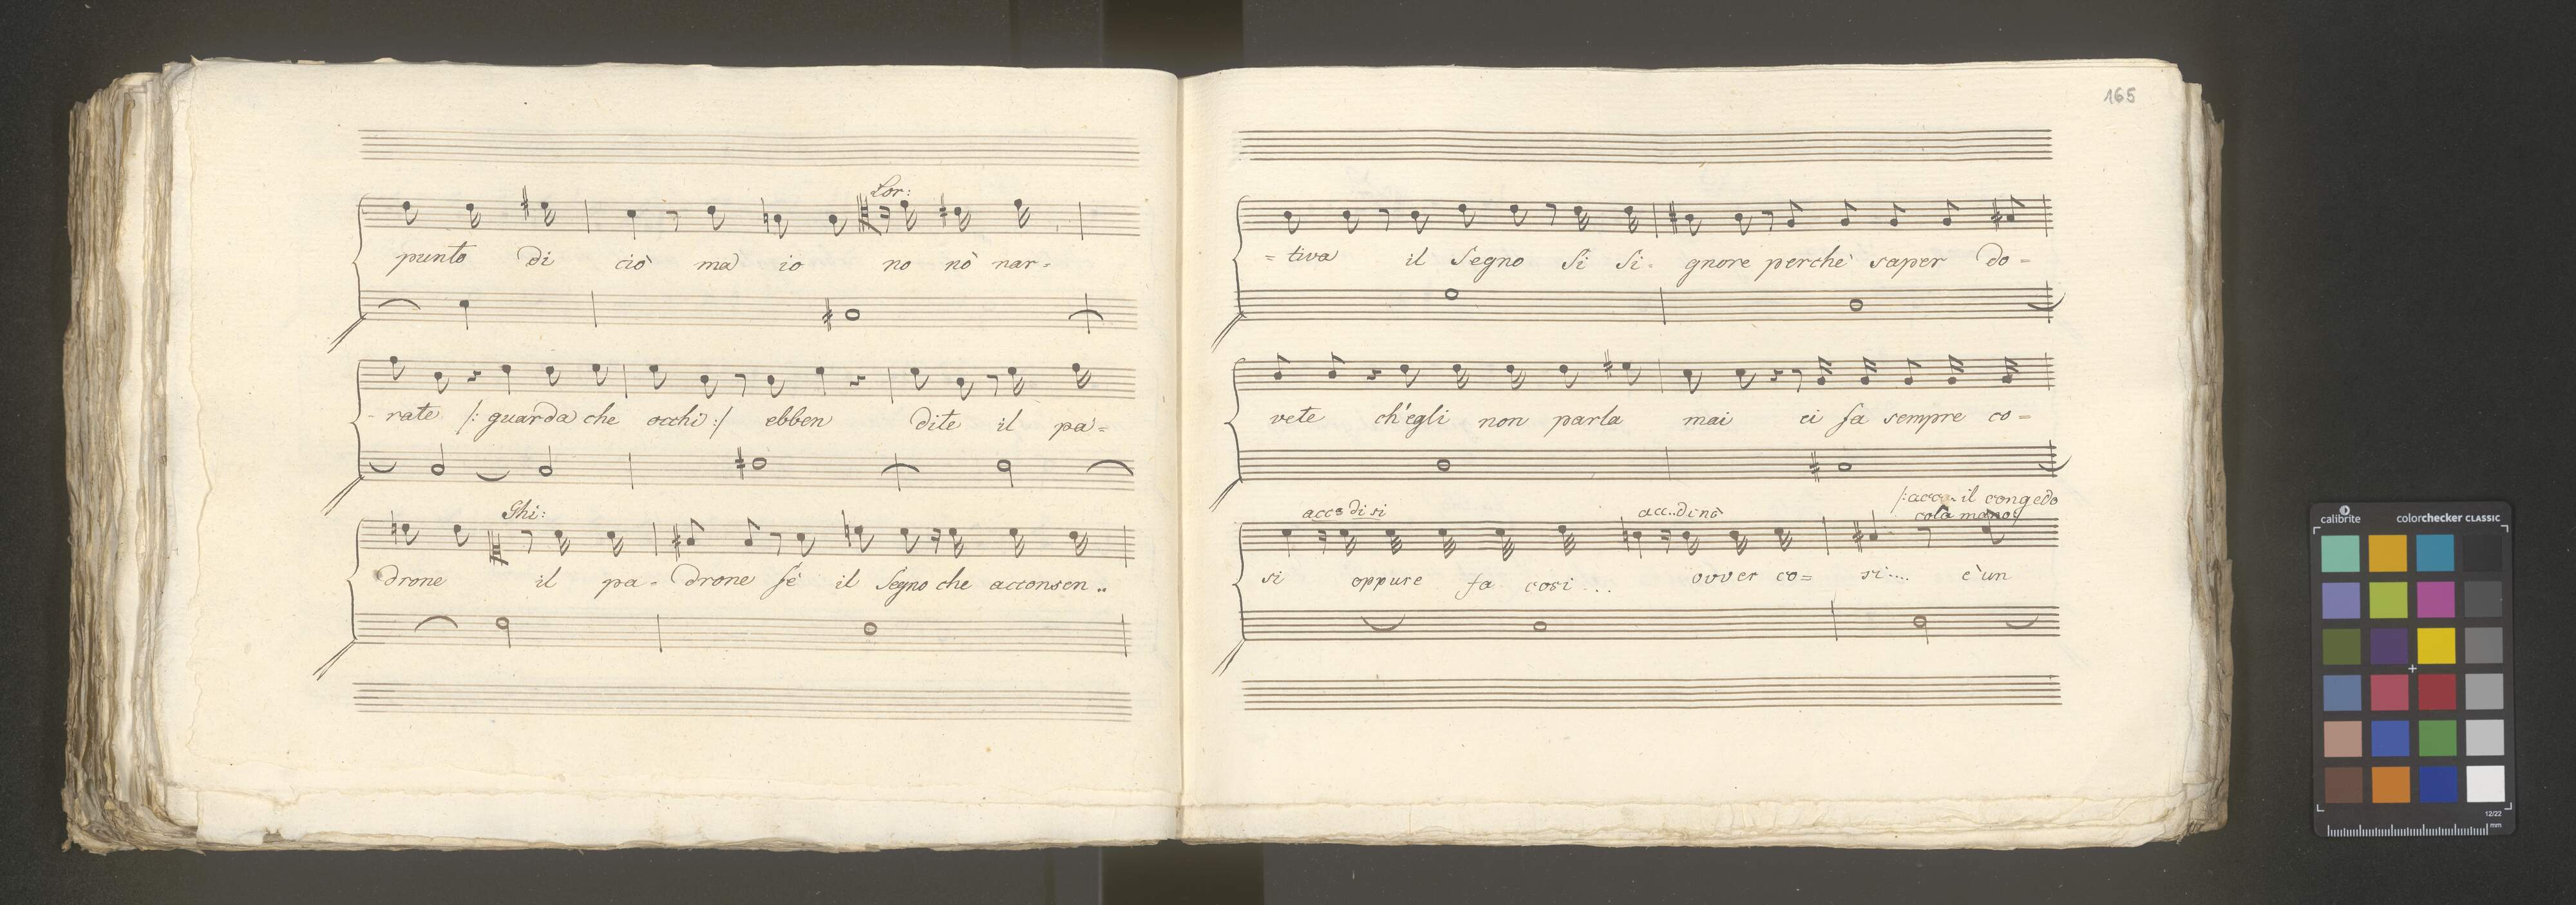 Lor:
punto di ciò ma io no nò nar-
-rate /: guarda che occhi :/ ebben dite il pa=
Ghi:
drone il pa- drone fé il Segno che acconsen..
165
=tiva il Segno Si Si- gnore perchè saper do-
vete ch'egli non parla mai ei fa sempre co=
/: acca il congedo
acca di si acc..di nò cola mano:/
si oppure fa cosi ... ovver co= si.... è un
calibrite colorchecker CLASSIC
12/22
mm